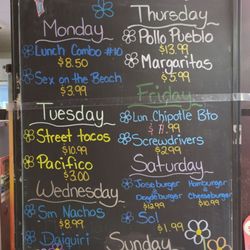 Monday
Lunch Combo #10
$8.50
Sex on the Beach
$3.99
Tuesday
Street tacos
$10.99
Pacifico
$3.00
Wednesday
Sm Nachos
$8.99
Daiquiri
Thursday
Pollo Pueblo
$13.99
Margaritas
$5.99
Friday
Lun Chipotle Bto
$11.99
Screwdrivers
$2.99
Saturday
Joseburger
Doogieburger
$12.99
Hamburger
&
Cheeseburger
$10.99
Sol
$1.99
Sunday